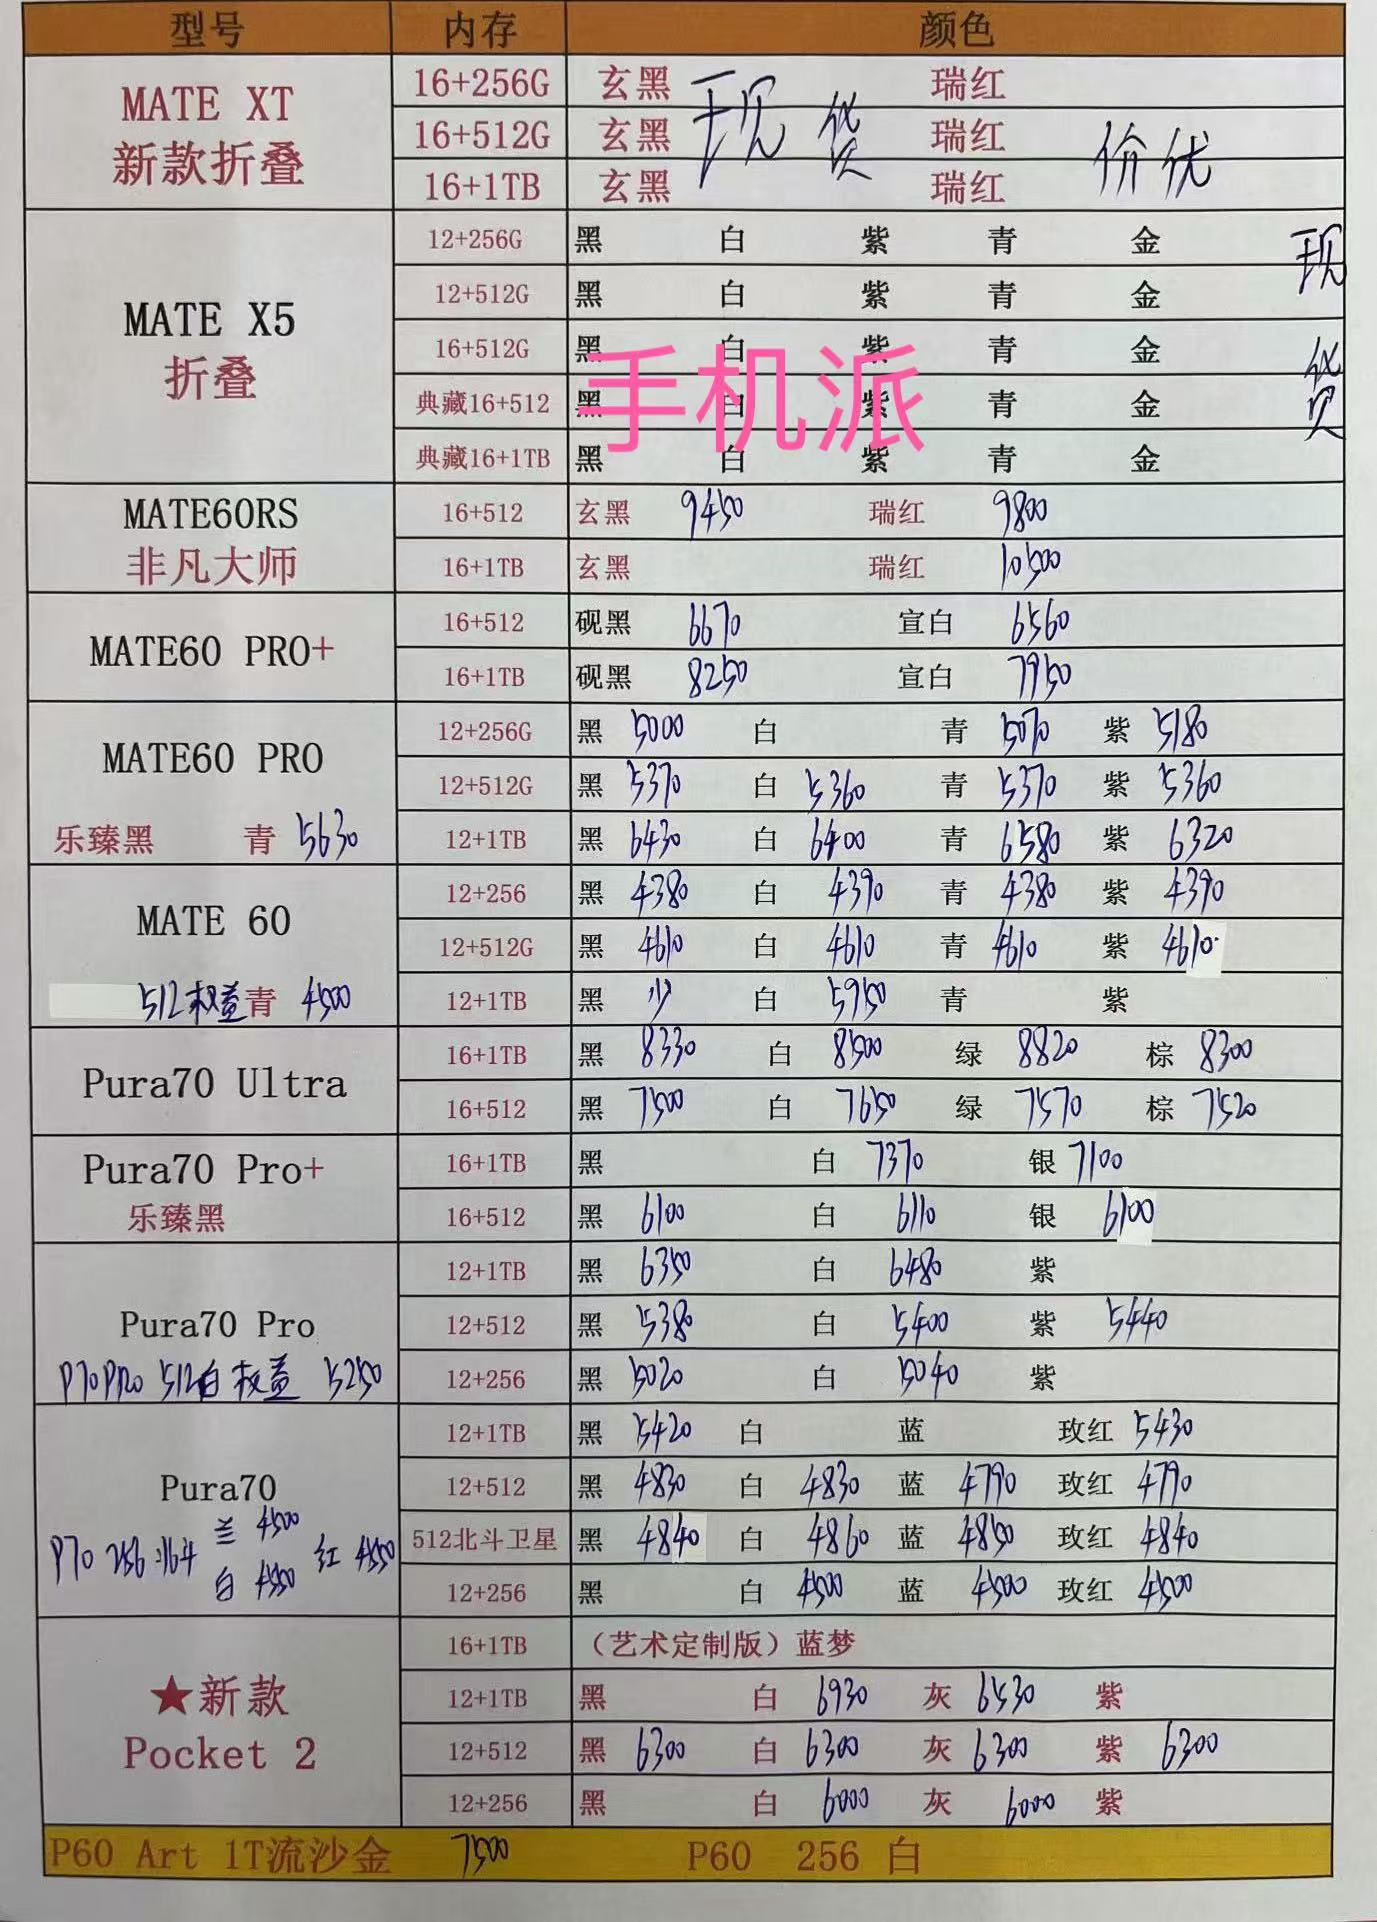 型号 内存 颜色
MATE XT 新款折叠
16+256G 玄黑 瑞红
16+512G 玄黑 瑞红
16+1TB 玄黑 瑞红
现货 价优
MATE X5 折叠
12+256G 黑 白 紫 青 金
12+512G 黑 白 紫 青 金
16+512G 黑 白 紫 青 金
典藏16+512 黑 白 紫 青 金
典藏16+1TB 黑 白 紫 青 金
现货
手机派
MATE60RS 非凡大师
16+512 玄黑 9450 瑞红 9800
16+1TB 玄黑 瑞红 10500
MATE60 PRO+
16+512 砚黑 6670 宣白 6560
16+1TB 砚黑 8250 宣白 7950
MATE60 PRO
乐臻黑 青 5630
12+256G 黑 5000 白 青 5070 紫 5180
12+512G 黑 5370 白 5360 青 5370 紫 5360
12+1TB 黑 6430 白 6400 青 6580 紫 6320
MATE 60
512权益青 4500
12+256 黑 4380 白 4390 青 4380 紫 4390
12+512G 黑 4610 白 4610 青 4610 紫 4610
12+1TB 黑 少 白 5950 青 紫
Pura70 Ultra
16+1TB 黑 8330 白 8500 绿 8820 棕 8300
16+512 黑 7500 白 7650 绿 7570 棕 7520
Pura70 Pro+
乐臻黑
16+1TB 黑 白 7370 银 7100
16+512 黑 6100 白 6110 银 6100
Pura70 Pro
P70PRO 512白权益 5250
12+1TB 黑 6350 白 6480 紫
12+512 黑 5380 白 5400 紫 5440
12+256 黑 5020 白 5040 紫
Pura70
P70 256北斗 兰 4500 白 4550 红 4550
12+1TB 黑 5420 白 蓝 玫红 5430
12+512 黑 4830 白 4830 蓝 4790 玫红 4790
512北斗卫星 黑 4840 白 4860 蓝 4850 玫红 4840
12+256 黑 白 4500 蓝 4500 玫红 4500
★新款
Pocket 2
16+1TB （艺术定制版）蓝梦
12+1TB 黑 白 6930 灰 6530 紫
12+512 黑 6300 白 6300 灰 6300 紫 6300
12+256 黑 白 6000 灰 6000 紫
P60 Art 1T流沙金 7500 P60 256 白